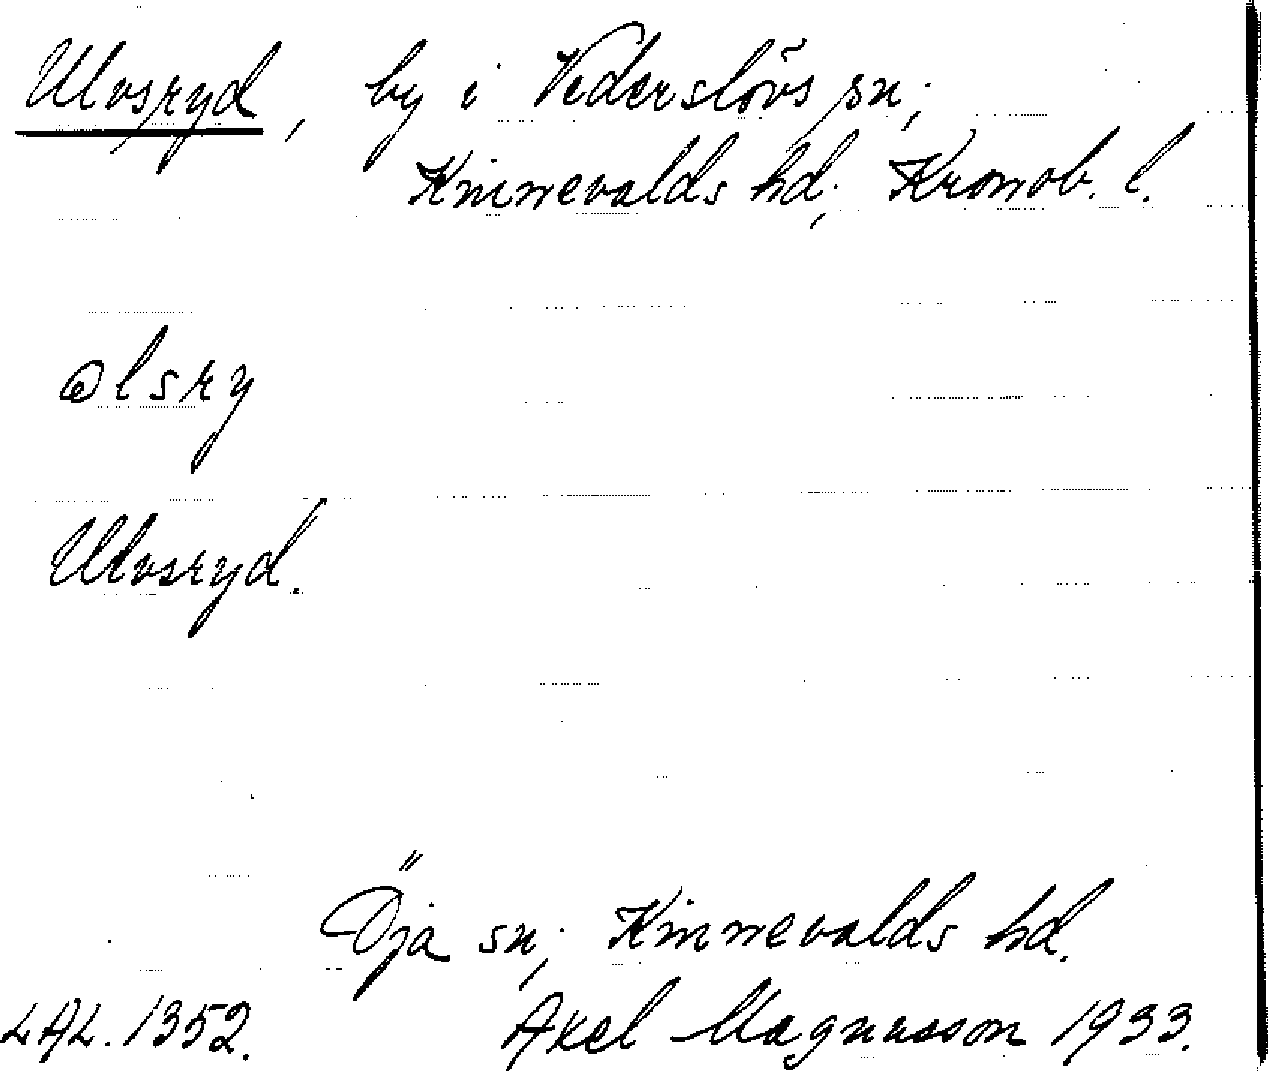 Ulvsryd, by i Vederslövs sn;
Kinnevalds hd; Kronob. l.
ɷlsry
Ulvsryd.
Öja sn; Kinnevalds hd.
LAL. 1352. Axel Magnusson 1933.